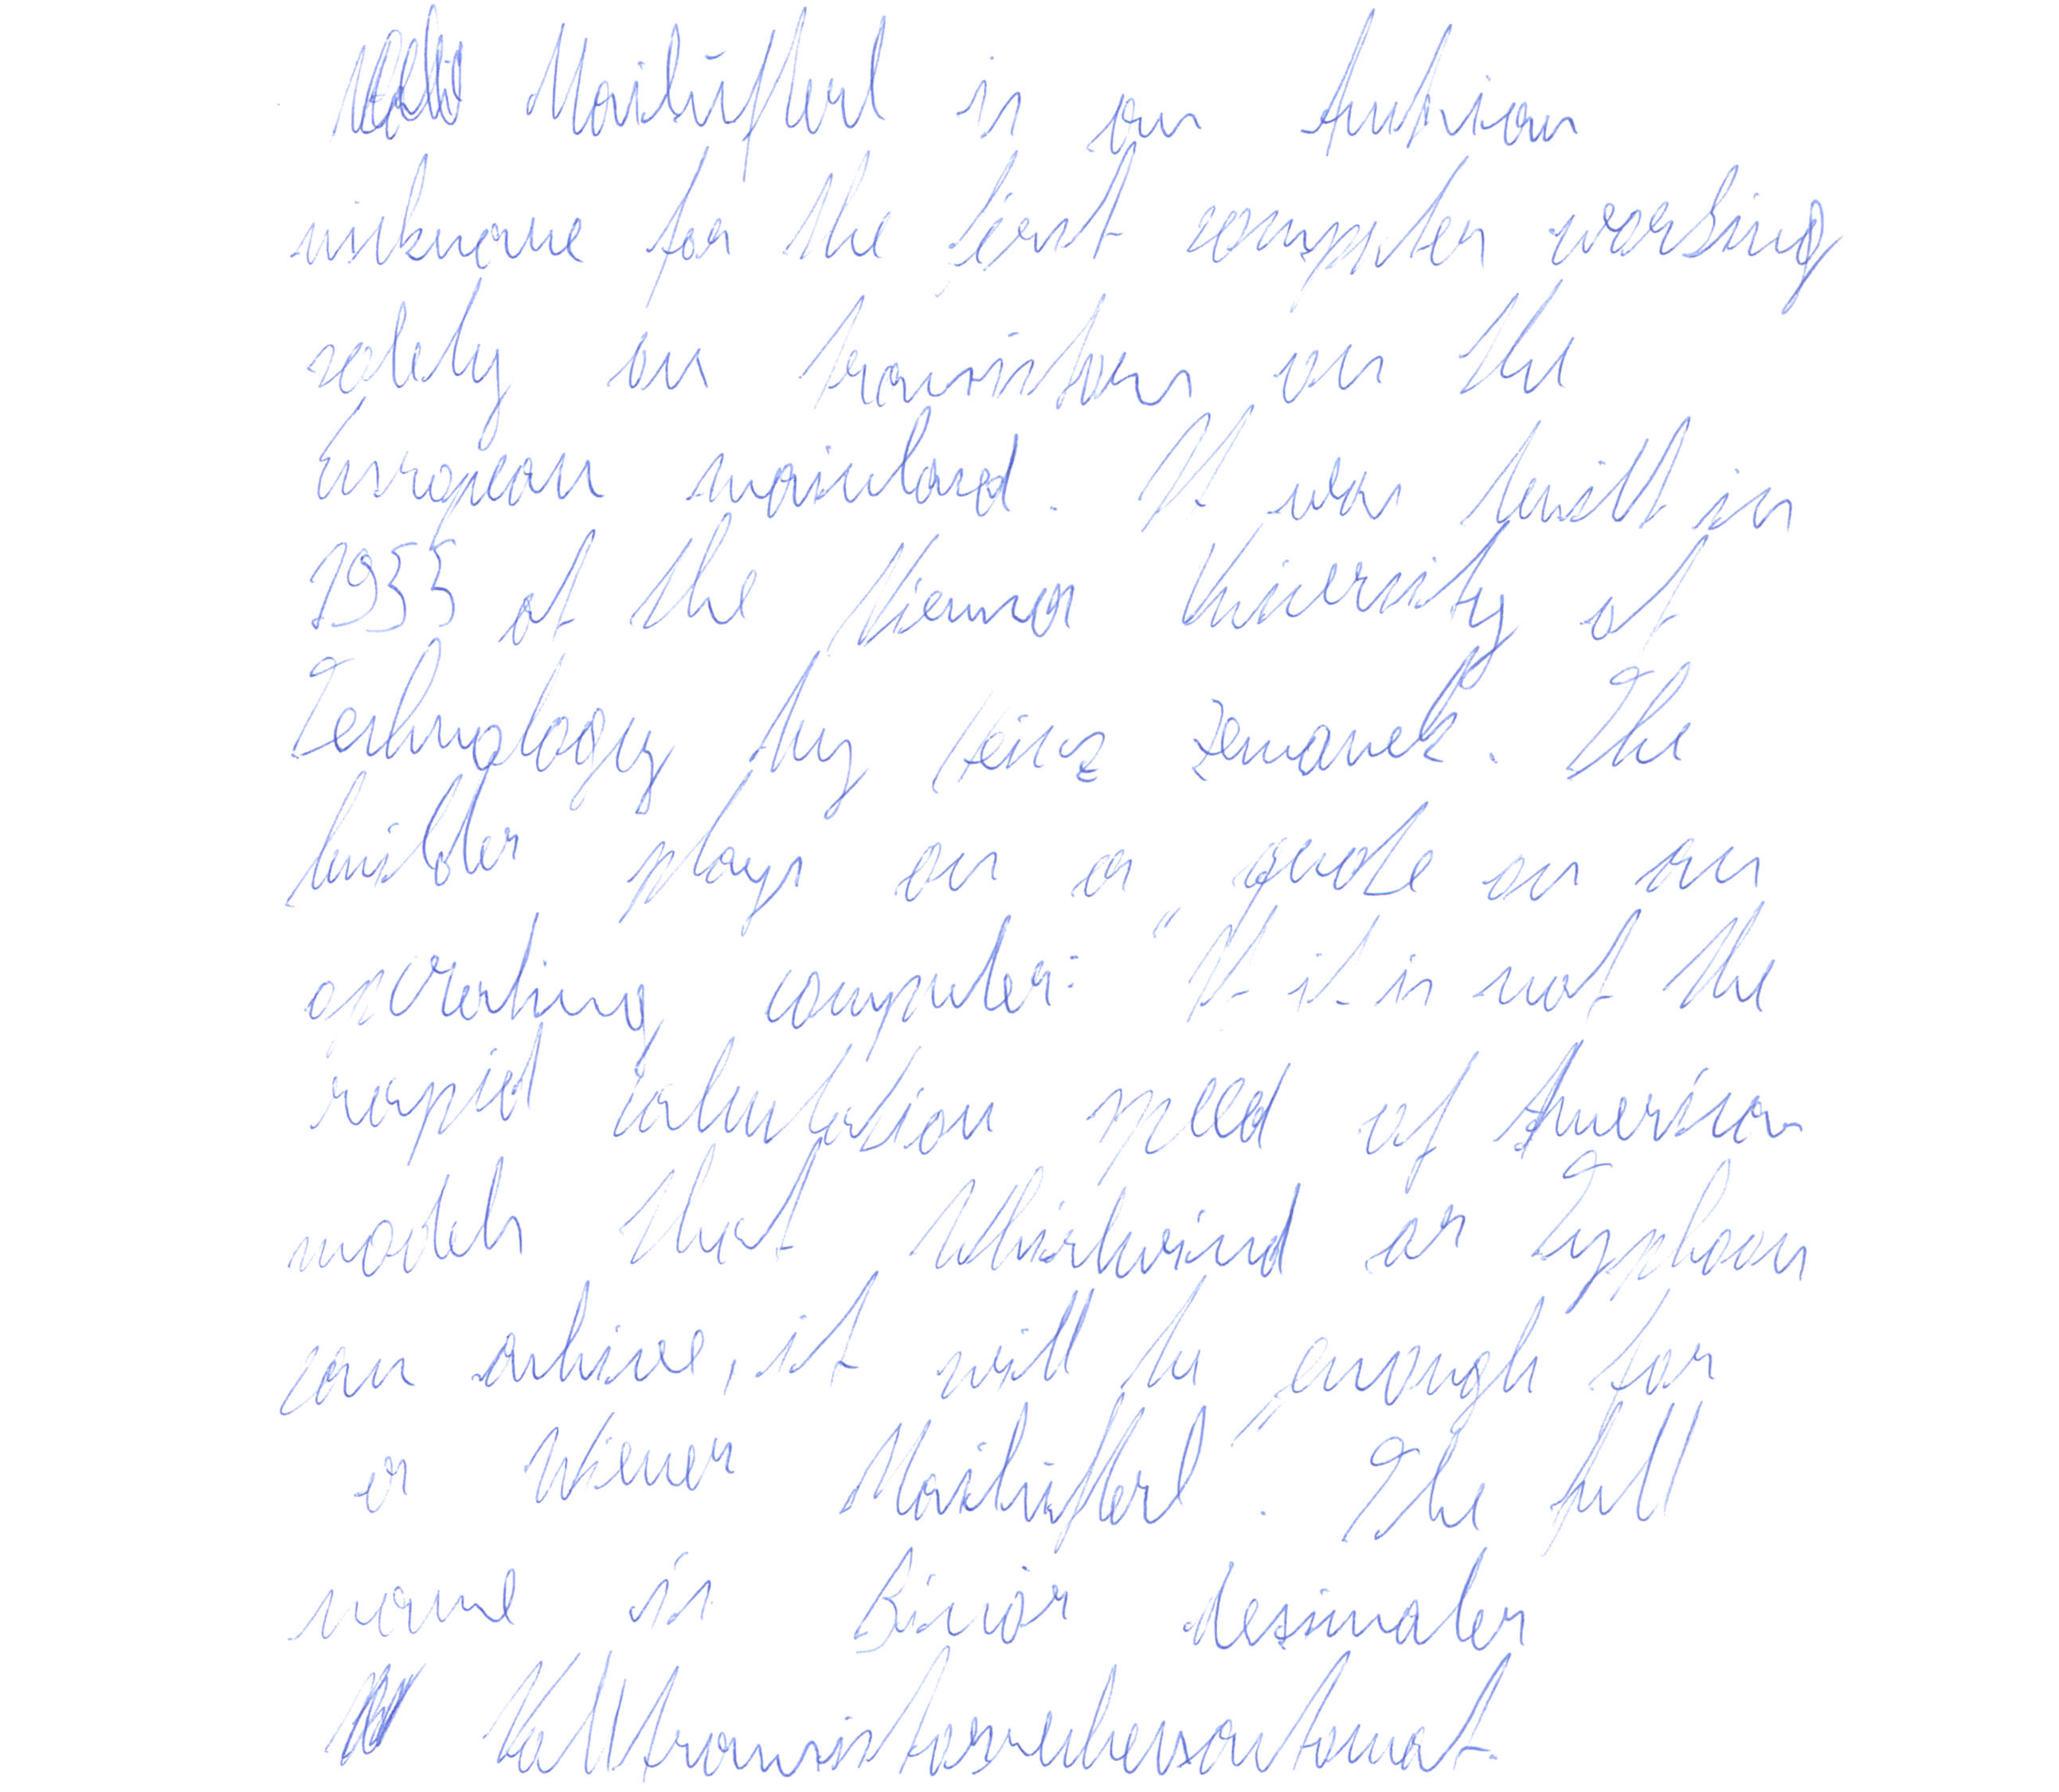 Mailüfterl is an Austrian
nickname for the first computer working
solely on transistors on the
European mainland. It was built in
1955 at the Vienna University of
Technology by Heinz Zemanek. The
builder plays on a quote on an
operating computer: "If it is not the
rapid calculation speed of American
models that Whirlwind or Typhoon
can achieve, it will be enough for
a Wiener Mailüfterl". The full
name is Binär dezimaler
Volltransistorrechenautomat.